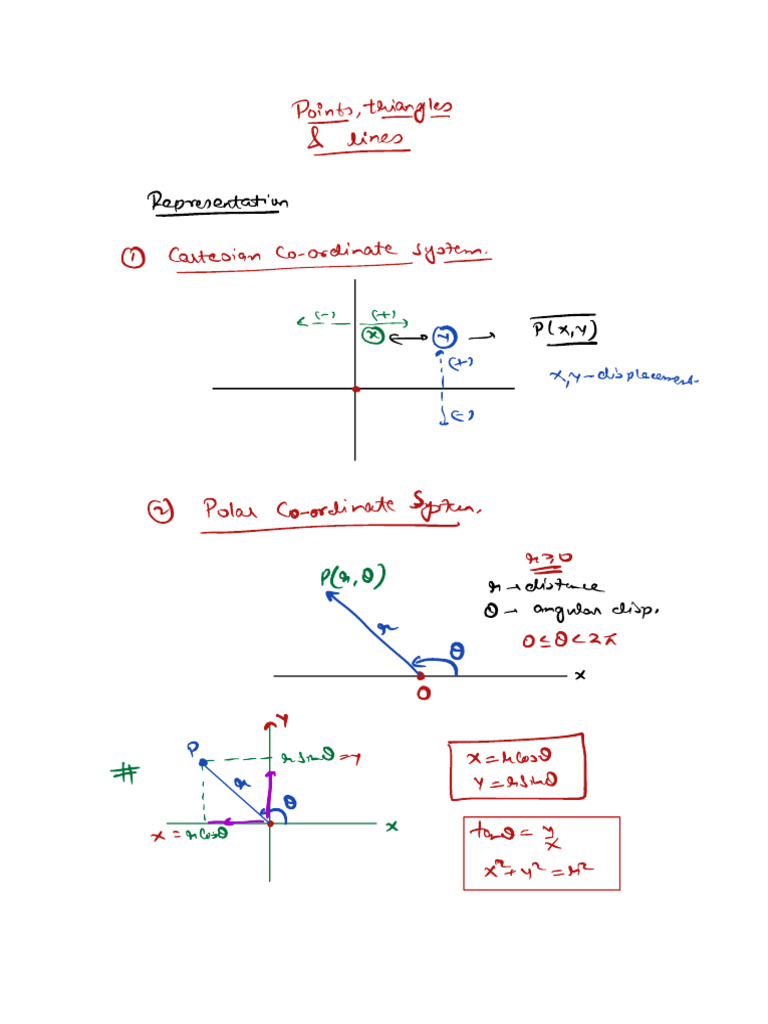 Points, triangles
& lines
Representation
① Cartesian Co-ordinate system.
(-) (+)
x y P(x,y)
(+)
x,y-displacement
(-)
② Polar Co-ordinate System.
r≥0
P(r,θ)
r→distance
θ→ angular disp.
r
θ
0≤θ<2π
x
O
y
P
r sinθ=y
x=rcosθ
#
r
y=rsinθ
θ
x
x=rcosθ
tanθ=y/x
x²+y²=r²